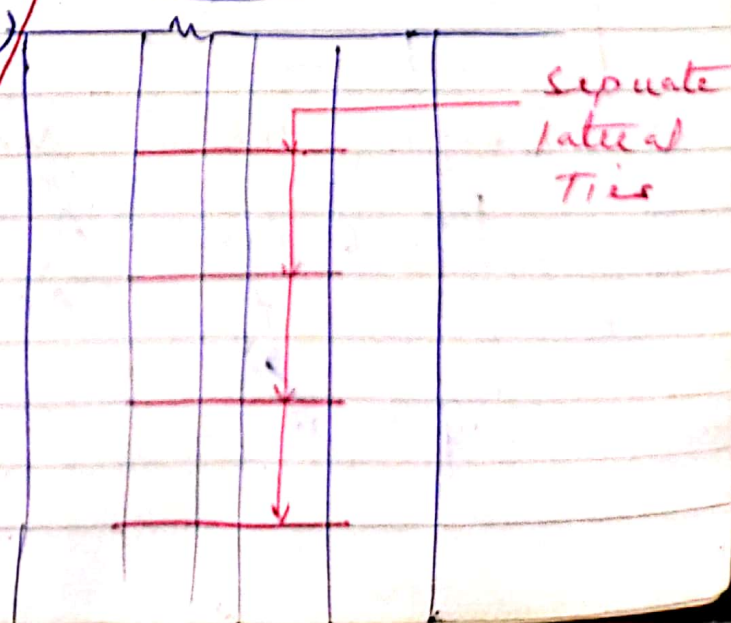 Sepuate
lateral
Ties